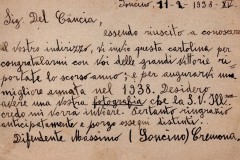 Soncino, 11-2-1938-XV.
Sig. Del Cancia,
essendo riuscito a conoscere
il vostro indirizzo, vi invio questa cartolina per
congratularmi con Voi delle grandi vittorie ri-
portate lo scorso anno; e per augurarvi una
migliore annata nel 1938. Desidero
avere una vostra fotografia che la S.V. Ill.
credo mi vorrà inviare. Pertanto ringrazio
anticipatamente e porgo ossequi distinti.
Difendente Massimo (Soncino) Cremona.